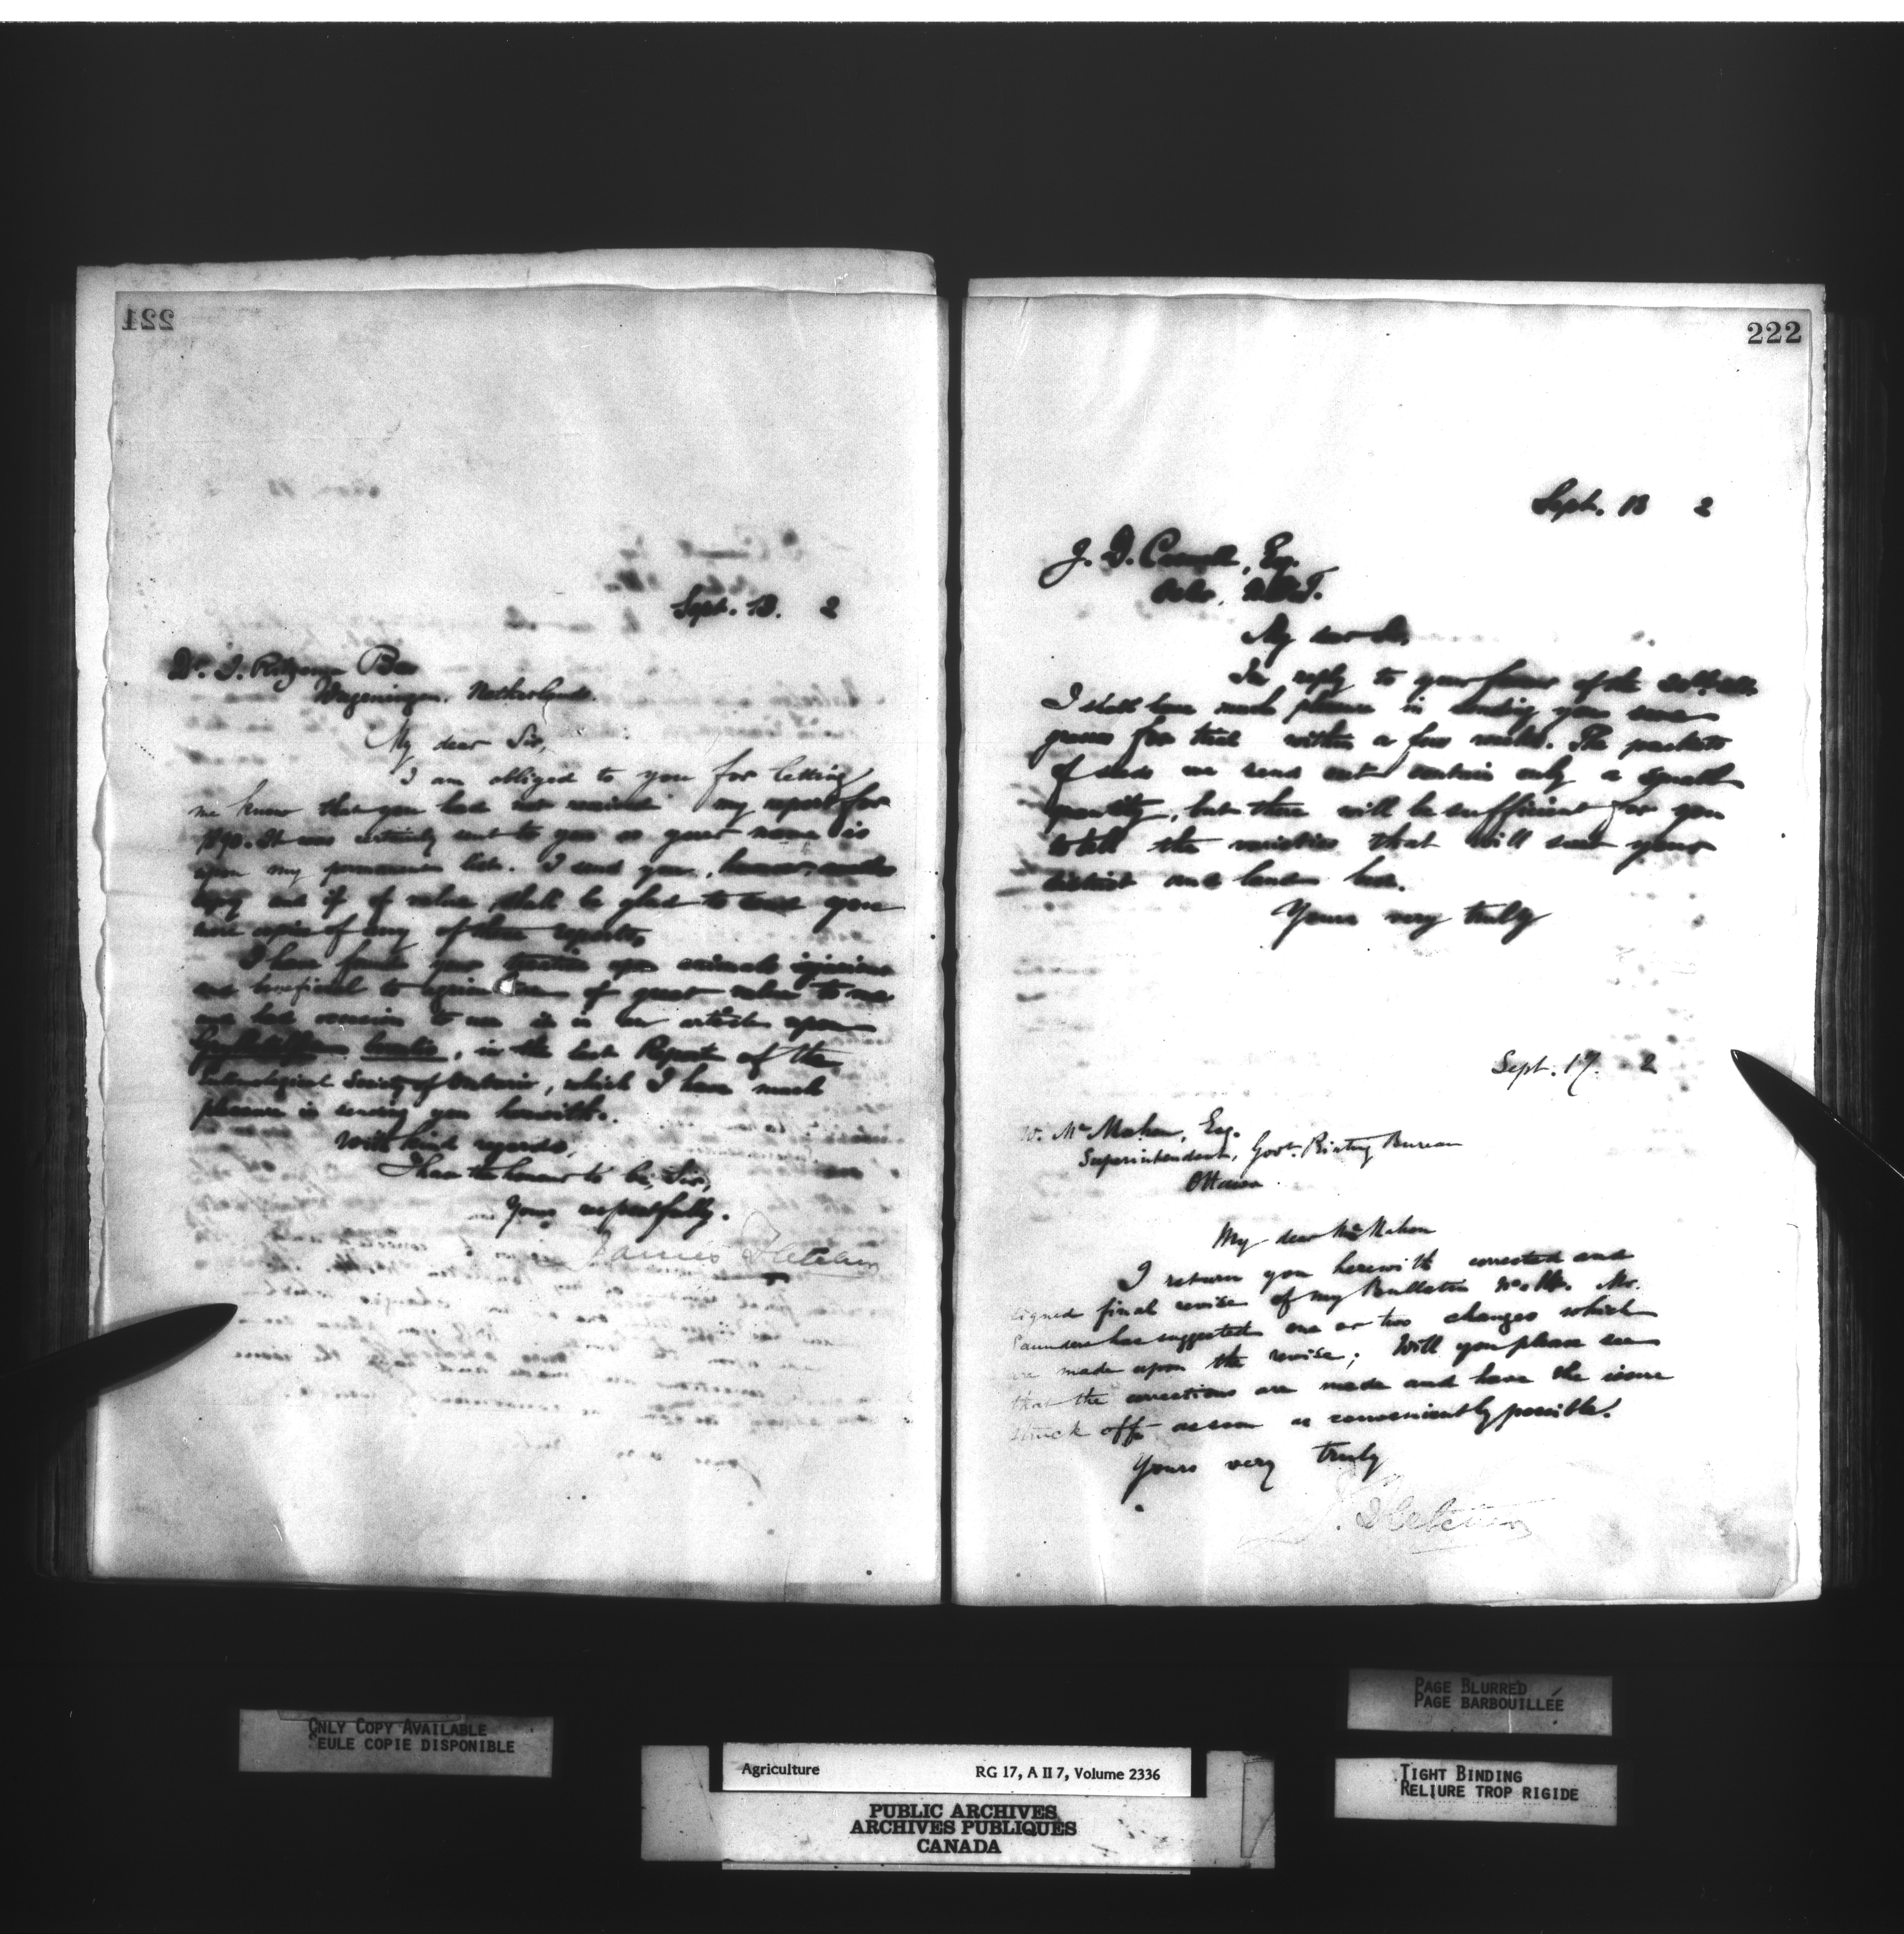 221
Sept. 13. 2
Dr. J. Ritzema Bos
Wageningen. Netherlands.
My dear Sir,
I am obliged to you for letting
me know that you had not received my report for
It was certainly sent to you as your name is
upon my permanent list. I send you, however, another
copy and if of value shall be glad to send you
copies of any of these reports.
I have found your upon animals injurious
and beneficial to agriculture of great value to me
and had occasion to use it in an article upon
, in the last Report of the
Entomological Society of Ontario, which I have much
pleasure in sending you herewith.
With kind regards,
I have the honour to be, Sir,
Yours respectfully.
James Fletcher
222
Sept. 13 2
J. D. , Esq.
N.W.T.
My dear Sir,
In reply to your favour of the
I shall have much pleasure in sending you some
grasses for trial within a few weeks. The packets
of seeds we send out contain only a small
quantity, but there will be sufficient for you
to tell the varieties that will suit your
district and land best.
Yours very truly
Sept. 17. 2
W. McMahon, Esq.
Superintendent, Govt. Printing Bureau
Ottawa.
My dear McMahon
I return you herewith corrected and
signed final revise of my Bulletin No. Mr.
Saunders has suggested one or two changes which
are made upon the revise; Will you please see
that the corrections are made and have the issue
struck off as soon as conveniently possible.
Yours very truly
J. Fletcher
ONLY COPY AVAILABLE
SEULE COPIE DISPONIBLE
PAGE BLURRED
PAGE BARBOUILLÉE
TIGHT BINDING
RELIURE TROP RIGIDE
Agriculture RG 17, A II 7, Volume 2336
PUBLIC ARCHIVES
ARCHIVES PUBLIQUES
CANADA